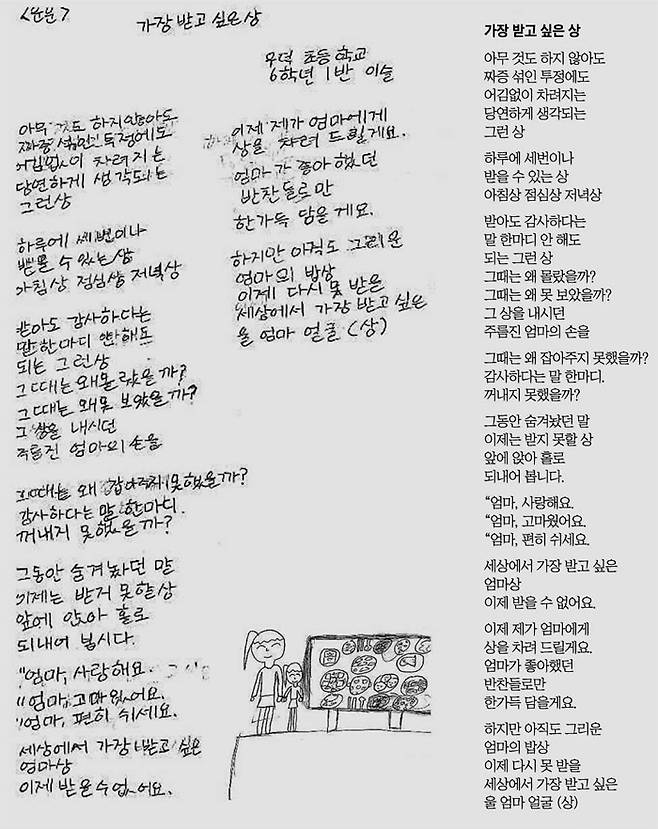 <산문>
가장 받고 싶은 상
우덕 초등 학교
6학년 1반 이슬
아무 것도 하지 않아도
짜증 섞인 투정에도
어김없이 차려지는
당연하게 생각되는
그런상
하루에 세번이나
받을 수 있는 상
아침상 점심상 저녁상
받아도 감사하다는
말 한마디 안해도
되는 그런상
그때는 왜 몰랐을까?
그때는 왜 못 보았을까?
그 상을 내시던
주름진 엄마의 손을
그때는 왜 잡아주지 못했을까?
감사하다는 말 한마디.
꺼내지 못했을까?
그동안 숨겨놨던 말
이제는 받지 못할 상
앞에 앉아 홀로
되내어 봅시다.
"엄마, 사랑해요.
"엄마, 고마웠어요.
"엄마, 편히 쉬세요.
세상에서 가장 받고 싶은
엄마상
이제 받을수 없어요.
이제 제가 엄마에게
상을 차려 드릴게요.
엄마가 좋아했던
반찬들로만
한가득 담을게요.
하지만 아직도 그리운
엄마의 밥상
이제 다시 못 받을
세상에서 가장 받고 싶은
울 엄마 얼굴 (상)
가장 받고 싶은 상
아무 것도 하지 않아도
짜증 섞인 투정에도
어김없이 차려지는
당연하게 생각되는
그런 상
하루에 세번이나
받을 수 있는 상
아침상 점심상 저녁상
받아도 감사하다는
말 한마디 안 해도
되는 그런 상
그때는 왜 몰랐을까?
그때는 왜 못 보았을까?
그 상을 내시던
주름진 엄마의 손을
그때는 왜 잡아주지 못했을까?
감사하다는 말 한마디.
꺼내지 못했을까?
그동안 숨겨놨던 말
이제는 받지 못할 상
앞에 앉아 홀로
되내어 봅니다.
“엄마, 사랑해요.
“엄마, 고마웠어요.
“엄마, 편히 쉬세요.
세상에서 가장 받고 싶은
엄마상
이제 받을 수 없어요.
이제 제가 엄마에게
상을 차려 드릴게요.
엄마가 좋아했던
반찬들로만
한가득 담을게요.
하지만 아직도 그리운
엄마의 밥상
이제 다시 못 받을
세상에서 가장 받고 싶은
울 엄마 얼굴 (상)